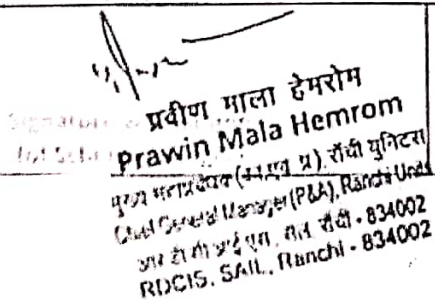 प्रवीण माला हेमरोम
Prawin Mala Hemrom
मुख्य महाप्रबंधक राँची युनिटस
Chief General Manager (P&A), Ranchi Units
आर डी सी आई एस, सेल, राँची - 834002
RDCIS, SAIL, Ranchi - 834002